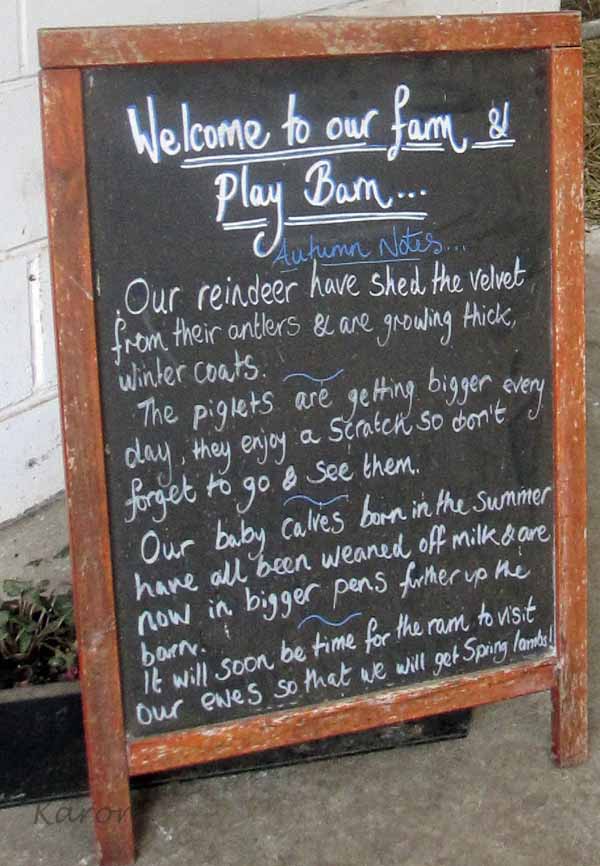 Welcome to our farm &
Play Barn...
Autumn Notes...
Our reindeer have shed the velvet
from their antlers & are growing thick,
winter coats.
The piglets are getting bigger every
day, they enjoy a scratch so don't
forget to go & see them.
Our baby calves born in the Summer
have all been weaned off milk & are
now in bigger pens further up the
barn.
It will soon be time for the ram to visit
our ewes so that we will get Spring lambs!
Karon